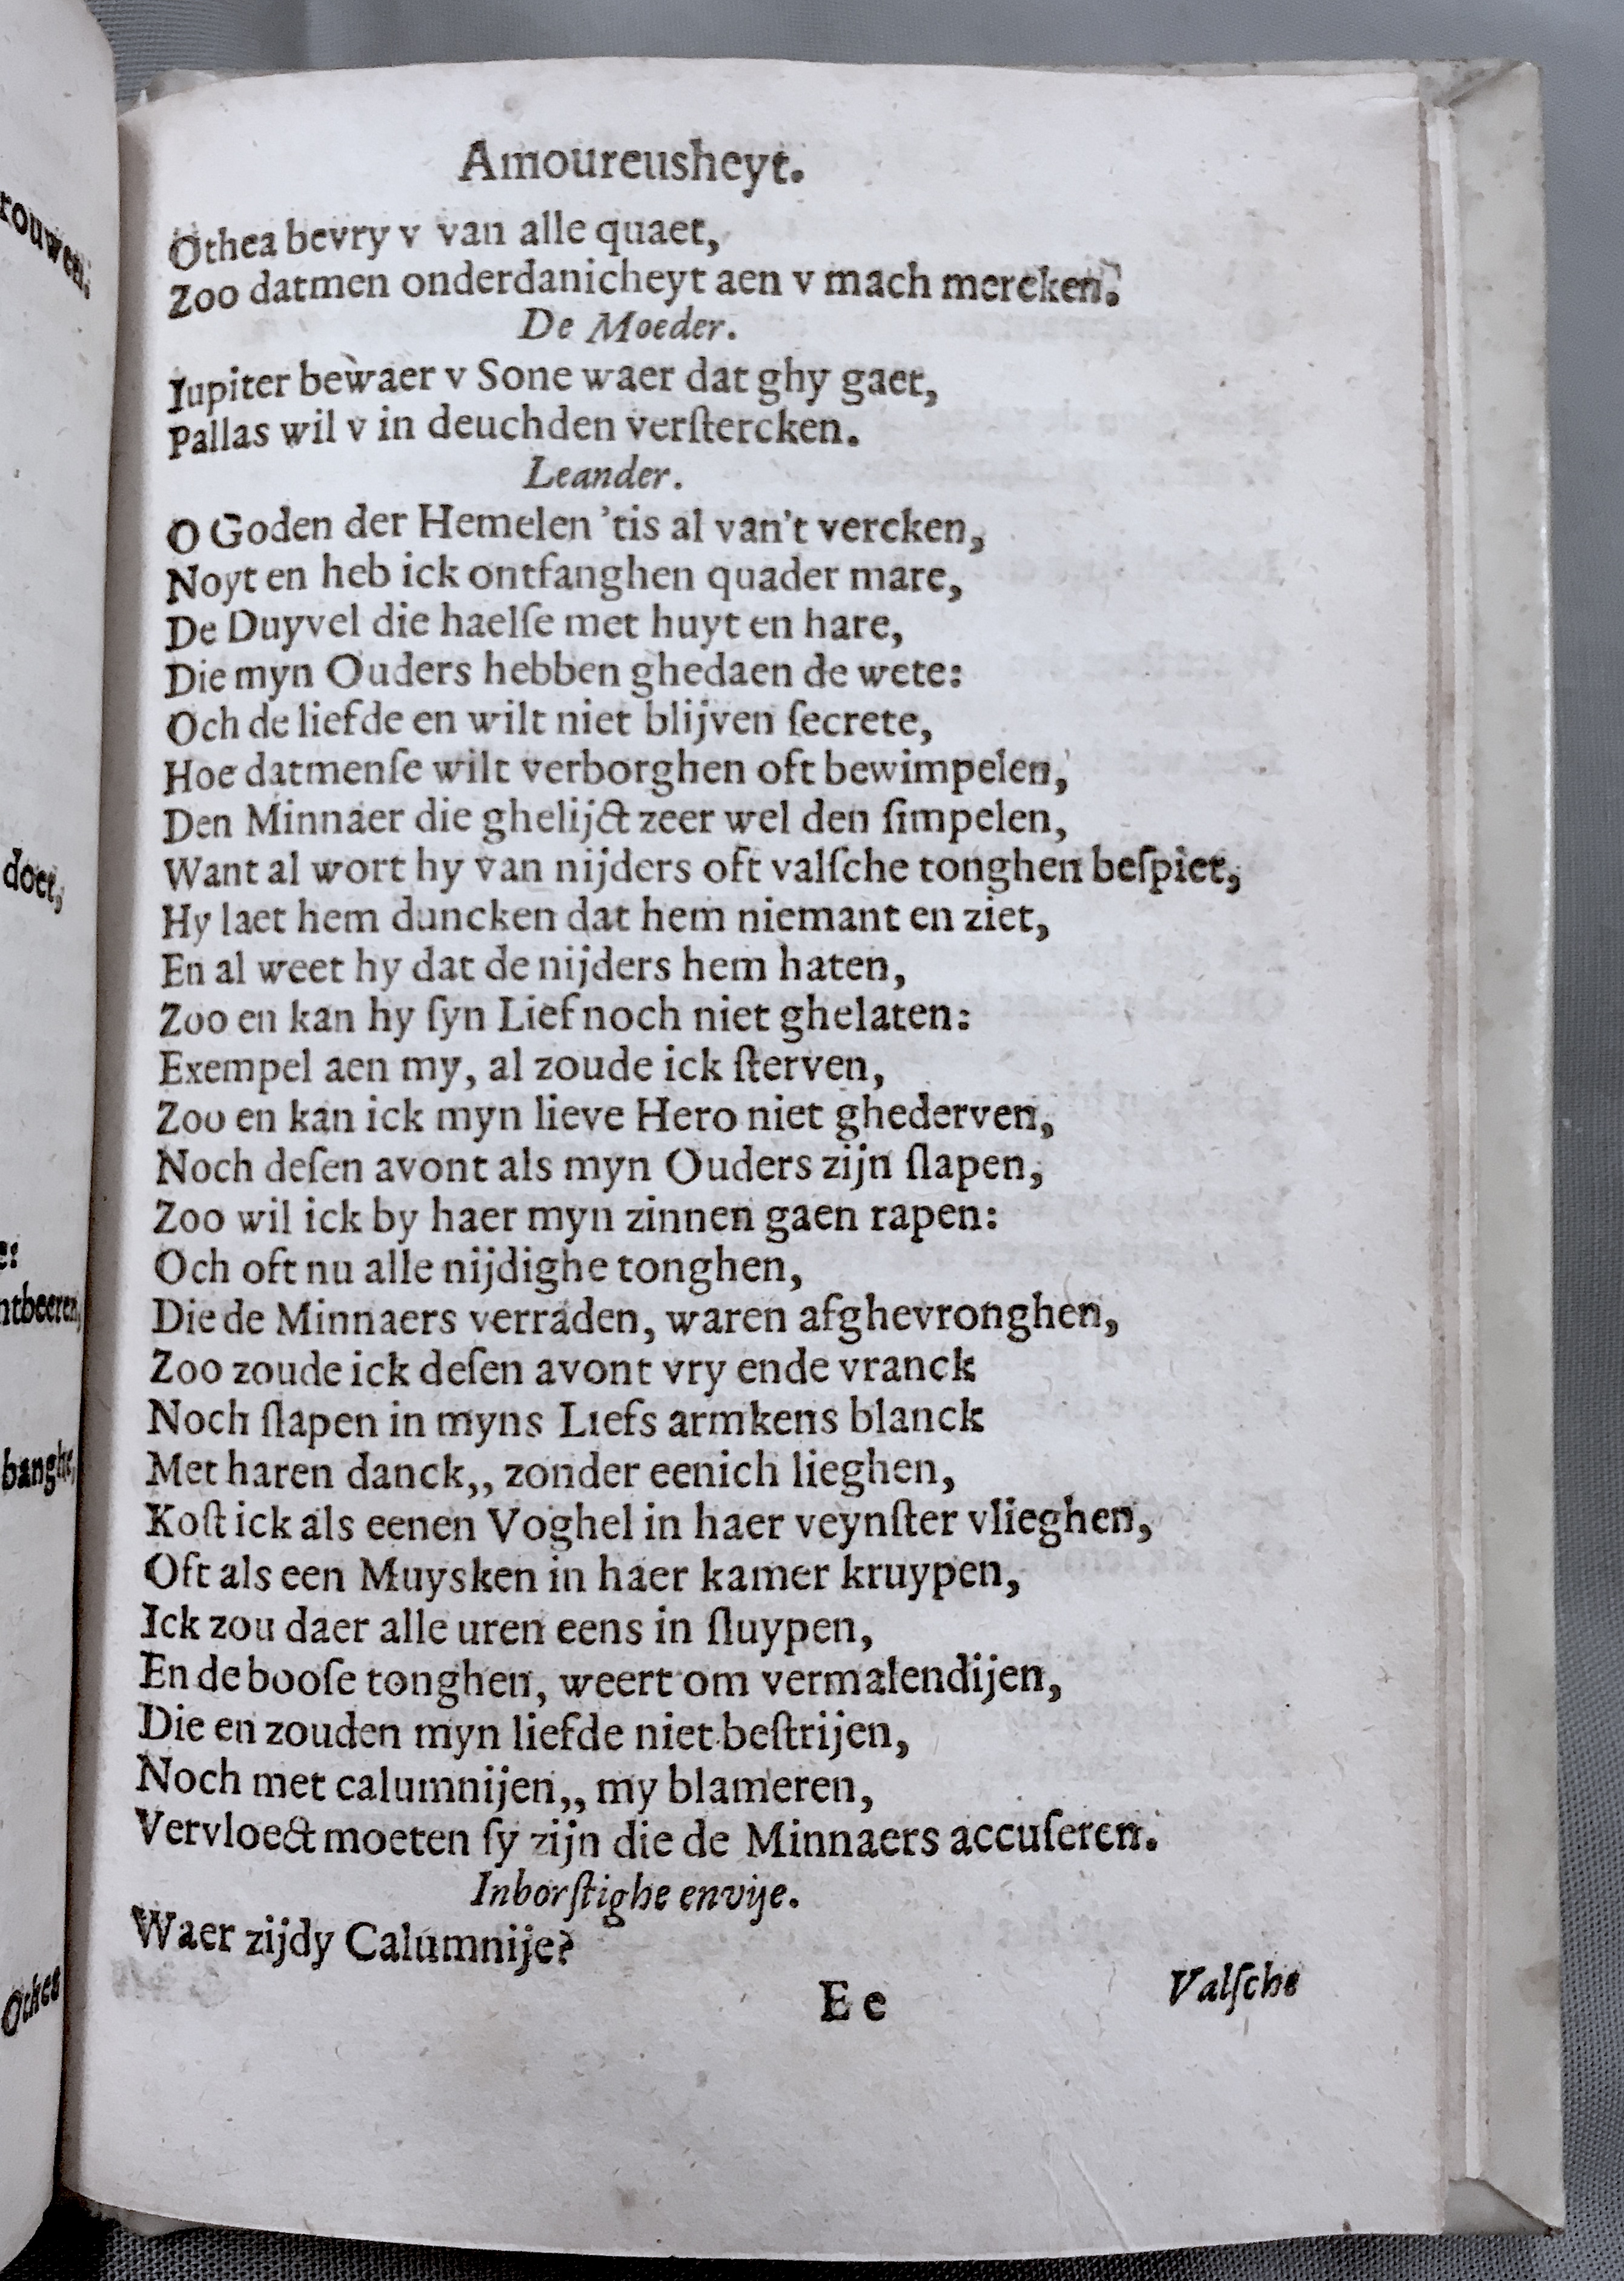 Amoureusheyt.
Othea bevry v van alle quaet,
Zoo datmen onderdanicheyt aen v mach mercken.
De Moeder.
Iupiter bewaer v Sone waer dat ghy gaet,
Pallas wil v in deuchden verſtercken.
Leander.
O Goden der Hemelen 'tis al van't vercken,
Noyt en heb ick ontfanghen quader mare,
De Duyvel die haelſe met huyt en hare,
Die myn Ouders hebben ghedaen de wete:
Och de liefde en wilt niet blijven ſecrete,
Hoe datmenſe wilt verborghen oft bewimpelen,
Den Minnaer die ghelijct zeer wel den ſimpelen,
Want al wort hy van nijders oft valſche tonghen beſpiet,
Hy laet hem duncken dat hem niemant en ziet,
En al weet hy dat de nijders hem haten,
Zoo en kan hy ſyn Lief noch niet ghelaten:
Exempel aen my, al zoude ick ſterven,
Zoo en kan ick myn lieve Hero niet ghederven,
Noch deſen avont als myn Ouders zijn ſlapen,
Zoo wil ick by haer myn zinnen gaen rapen:
Och oft nu alle nijdighe tonghen,
Die de Minnaers verraden, waren afghevronghen,
Zoo zoude ick deſen avont vry ende vranck
Noch ſlapen in myns Liefs armkens blanck
Met haren danck,, zonder eenich lieghen,
Koſt ick als eenen Voghel in haer veynſter vlieghen,
Oft als een Muysken in haer kamer kruypen,
Ick zou daer alle uren eens in ſluypen,
En de booſe tonghen, weert om vermalendijen,
Die en zouden myn liefde niet beſtrijen,
Noch met calumnijen,, my blameren,
Vervloect moeten ſy zijn die de Minnaers accuſeren.
Inborſtighe envije.
Waer zijdy Calumnije?
E e
Valſche
rouwen:
doet,
ntbeeren,
banghe,